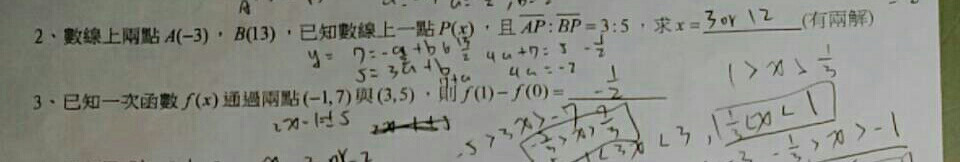 2、數線上兩點 A(-3),B(13),已知數線上一點 P(x),且 AP:BP=3:5,求 x= 3 or 12 (有兩解)
y= 7=-a+b 4a+7=5
5=3a+b 4a=-2
3、已知一次函數 f(x) 通過兩點(-1,7)與(3,5),則 f(1)-f(0)= -1/2
1>x>1/3
2x-1=±5
-5>3x>-7
1<3x<3, 1/3<x<1